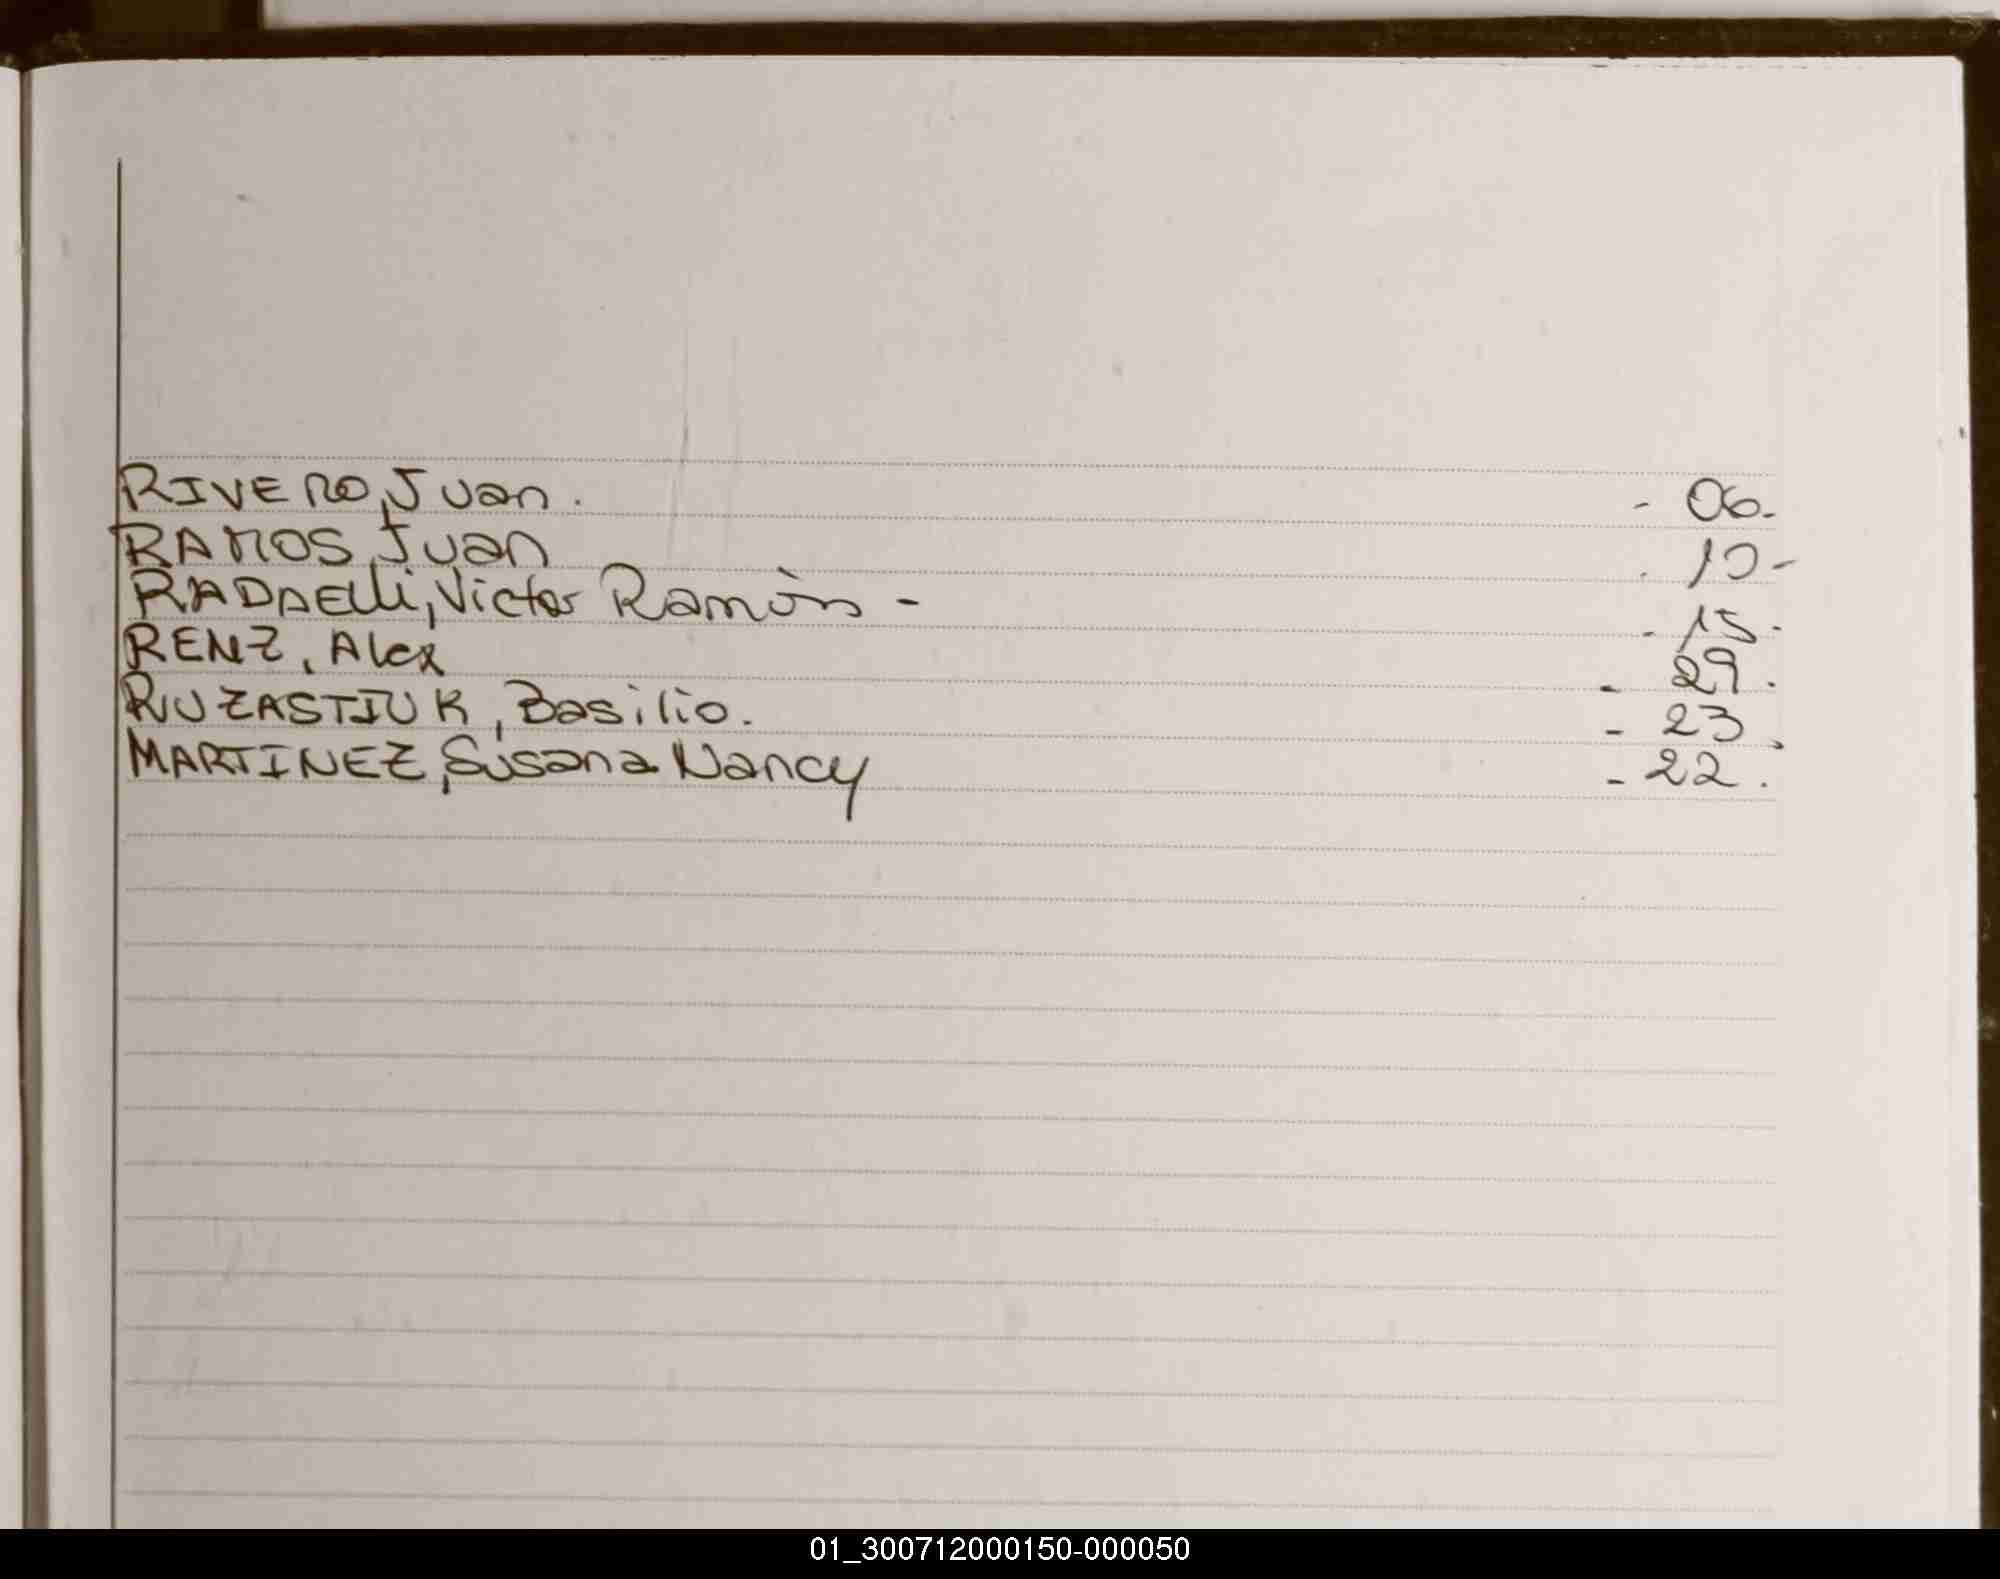 RIVERO, Juan. - 06.
RAMOS, Juan . 10-
RADAElli, Victor Ramòn - - 15.
RENZ, Alex - 29.
RIUZASTIUK, Basilio. - 23.
MARTINEZ, Susana Nancy - 22.
01_300712000150-000050